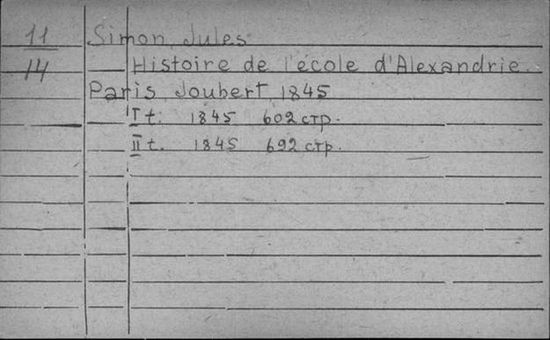 11
14
Simon, Jules
Histoire de l'école d'Alexandrie.
Paris Joubert 1845
I t. 1845 602 стр.
II t. 1845 692 стр.